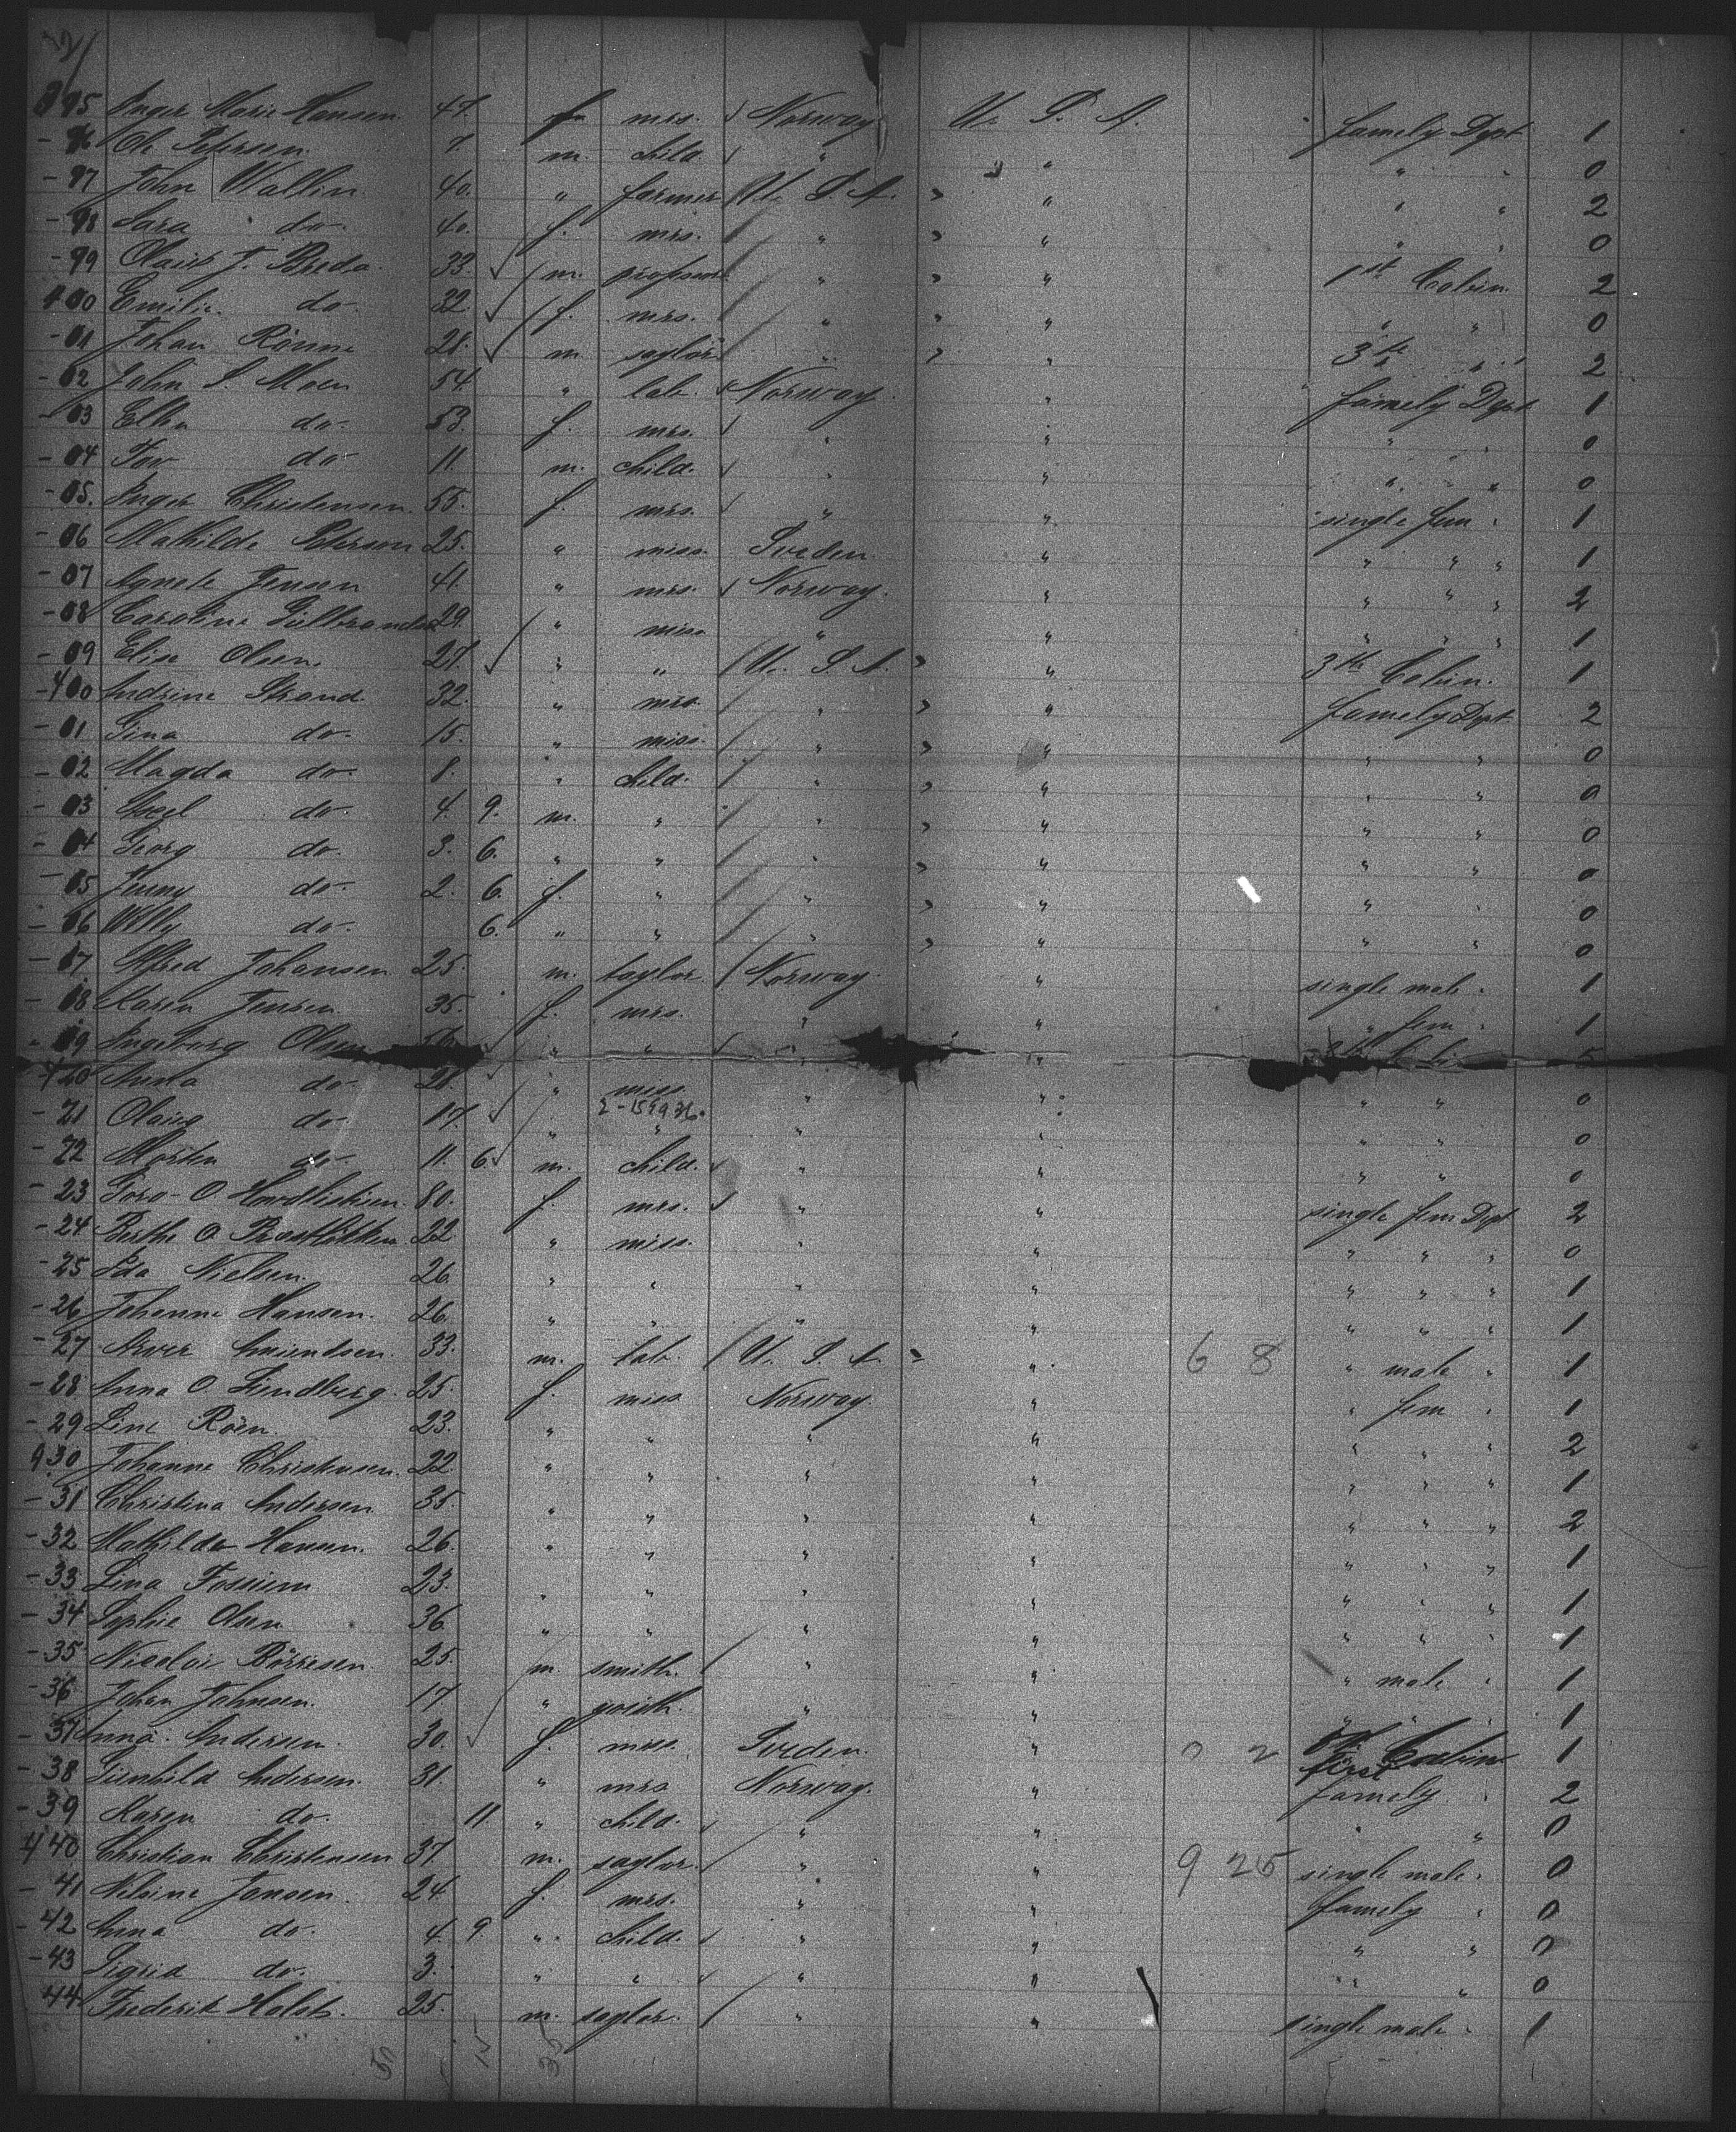 395 Inger Marie Hansen 47. f. mrs. Norway U. S. A. famely Dypt 1
- 96 Ole Petersen 7. m. child. " " " " 0
- 97 John Wallin 40. " farmer U. S. A. " " " 2
- 98 Sara do. 40. f. mrs. " " " " 0
- 99 Olaus J. Breda. 33. m. professor " " 1st Cabin. 2
400 Emilie do. 32. f. mrs. " " " " 0
- 01 Johan Rönne 21. m. saylor " " 3th " 2
- 02 John S. Moen 54. " lab. Norway. " famely Dypt. 1
- 03 Ellen do. 53. f. mrs. " " " 0
- 04 Tov do 11. m. child. " " " " 0
- 05. Inger Christensen. 55. f. mrs. " " single fem. 1
- 06 Mathilde Peterson 25. " miss. Sveden. " " " " 1
- 07 Agnete Jensen 41. " mrs. Norway. " " " " 2
- 08 Caroline 29. " miss " " " " " 1
- 09 Elise Olsen. 27. " " U. S. A. " 3th Cabin. 1
- 400 Andrine Strand. 32. " mrs. " " famely Dypt. 2
- 01 Gina do. 15. " miss. " " " " 0
- 02 Magda do. 8. " child. " " " " 0
- 03 Axel do. 4. 9. m. " " " " " 0
- 04 Georg do. 3. 6. " " " " " " 0
- 05 Jenny do. 2. 6. f. " " " " " 0
- 06 Willy do. 6. " " " " " " 0
- 07. Alfred Johansen 25. m. taylor. Norway. " single male. 1
- 08 Karen Jensen. 35. f. mrs. " " " fem. 1
- 09 Ingeborg Olsen " " " "
420 Anna do. 21. " miss. " " " " 0
2-159936.
- 21 Olaug do. 17. " " " " " " 0
- 22 Morten do. 11. 6. m. child. " " " " 0
- 23 Goro O. 80. f. mrs. " " single fem Dypt 2
- 24 Berthe O. 22 " miss. " " " " " 0
- 25 Ida Nielsen. 26. " " " " " " " 1
- 26. Johanne Hansen. 26. " " " " " " " 1
- 27 Amundsen. 33. m. lab. U. S. A. " 6 8 " male " 1
- 28 Anna O. Lundberg. 25. f. miss Norway. " " fem " 1
- 29 Line Röen. 23. " " " " " " " 2
430 Johanne Christensen. 22. " " " " " " " 1
- 31 Christina Andersen 35. " " " " " " " 2
- 32 Mathilde Hansen. 26. " " " " " " " 1
- 33 Lina Fossum 23. " " " " " " " 1
- 34 Sophie Olsen 36. " " " " " " " 1
- 35 Nicolai Börresen. 25. m. smith. " " " male " 1
- 36 Johan Johnsen. 17 " " " " " " 1
- 37 Anna Andersen 30. f. miss. Sveden. " 0 2 first Cabin 1
- 38 Gunhild Andersen. 31. " mrs Norway. " famely " 2
- 39 Karen do. 11. " child. " " " " 0
440 Christian Christensen 37 m. saylor. " " 9 25 single male. 0
- 41 Nelsine Jansen. 24. f. mrs. " " famely " 0
- 42 Anna do. 4. 9. " child. " " " " 0
- 43 Sigrid do. 3. " " " " " " 0
44 Frederik Holst. 25. m. saylor. " " single male. 1